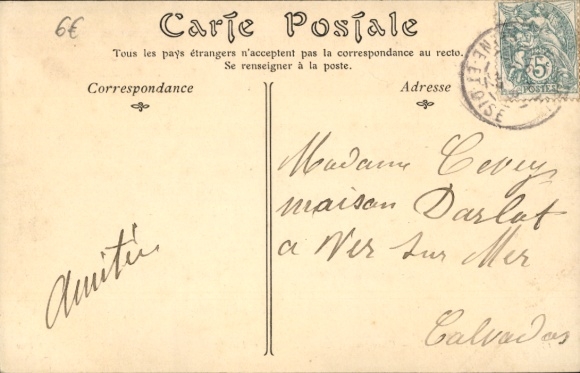 6€
Carte Postale
Tous les pays étrangers n'acceptent pas la correspondance au recto.
Se renseigner à la poste.
Correspondance
Adresse
5c
POSTES
ET OISE
Madame Cevey
maison Darlat
a Ver sur Mer
Calvados
Amitiés